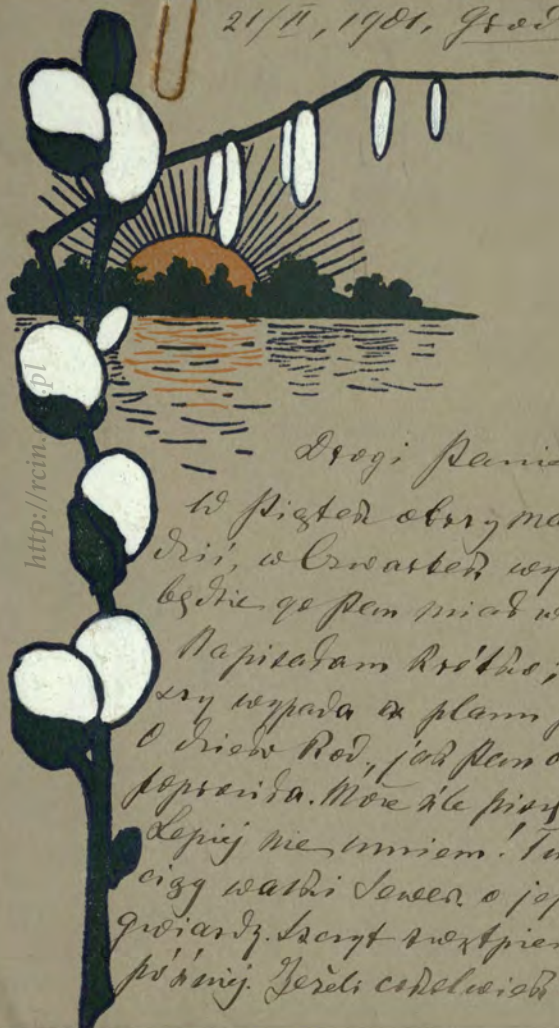 21/II, 1901, Grod
Drogi Panie
W Piątek otrzyma
dziś, w Czwartek wy
będzie go Pan miał w
Napisałam krótko,
czy wypada z planu
O dziew Rod., jak Pan
poprawiła. Może źle pisz
Lepiej nie umiem! Tu
ciąg walki Sewer. o jej
gwiazdy. Szczyt zwątpien
później. Jeżeli cokolwiek
http://rcin. .pl